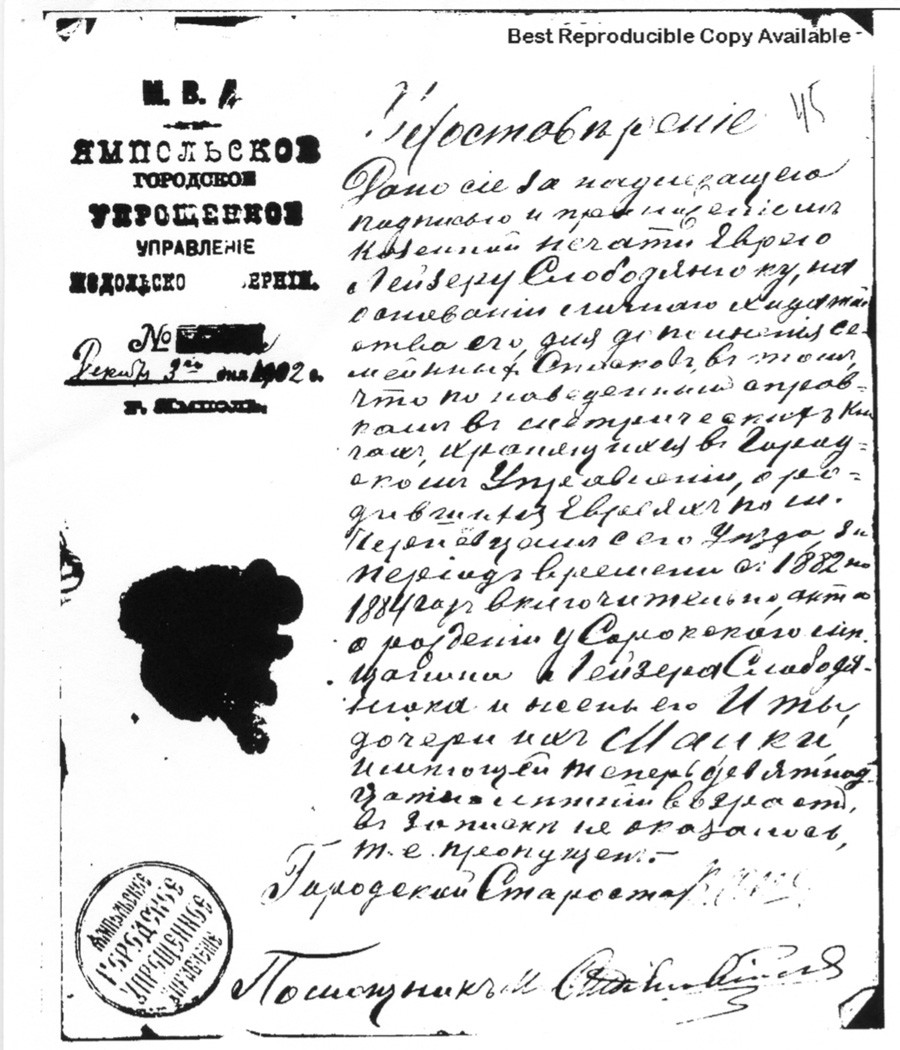 Best Reproducible Copy Available
М. В. Д.
ЯМПОЛЬСКОЕ
ГОРОДСКОЕ
УПРОЩЕННОЕ
УПРАВЛЕНІЕ
ПОДОЛЬСКО ЕРНІИ.
№
Декабря 3го дня 1902 г.
г. Ямполь.
45
Удостовѣреніе
Дано сіе за надлежащею
подписью и приложеніемъ
казенной печати Еврею
Лейзеру Слободянюку, на
основаніи личнаго ходатай
ства его, для дополненія се-
мейныхъ Списковъ, въ томъ,
что по наведеннымъ справ-
камъ въ метрическихъ кни
гахъ, хранящихся въ Город-
скомъ Управленіи, о ро-
дившихся Евреяхъ по м.
сего Уѣзда, за
періодъ времени съ 1882 по
1884 годъ включительно, акта
о рожденіи у Сорокскаго мѣ-
щанина Лейзера Слободя-
нюка и жены его Иты,
дочери ихъ
имѣющей теперь девятнад-
цатилѣтній возрастъ,
въ записи не оказалось,
т. е. пропущенъ.
Городской Староста
Помощникъ
ЯМПОЛЬСКОЕ
ГОРОДСКОЕ
УПРОЩЕННОЕ
УПРАВЛЕНІЕ